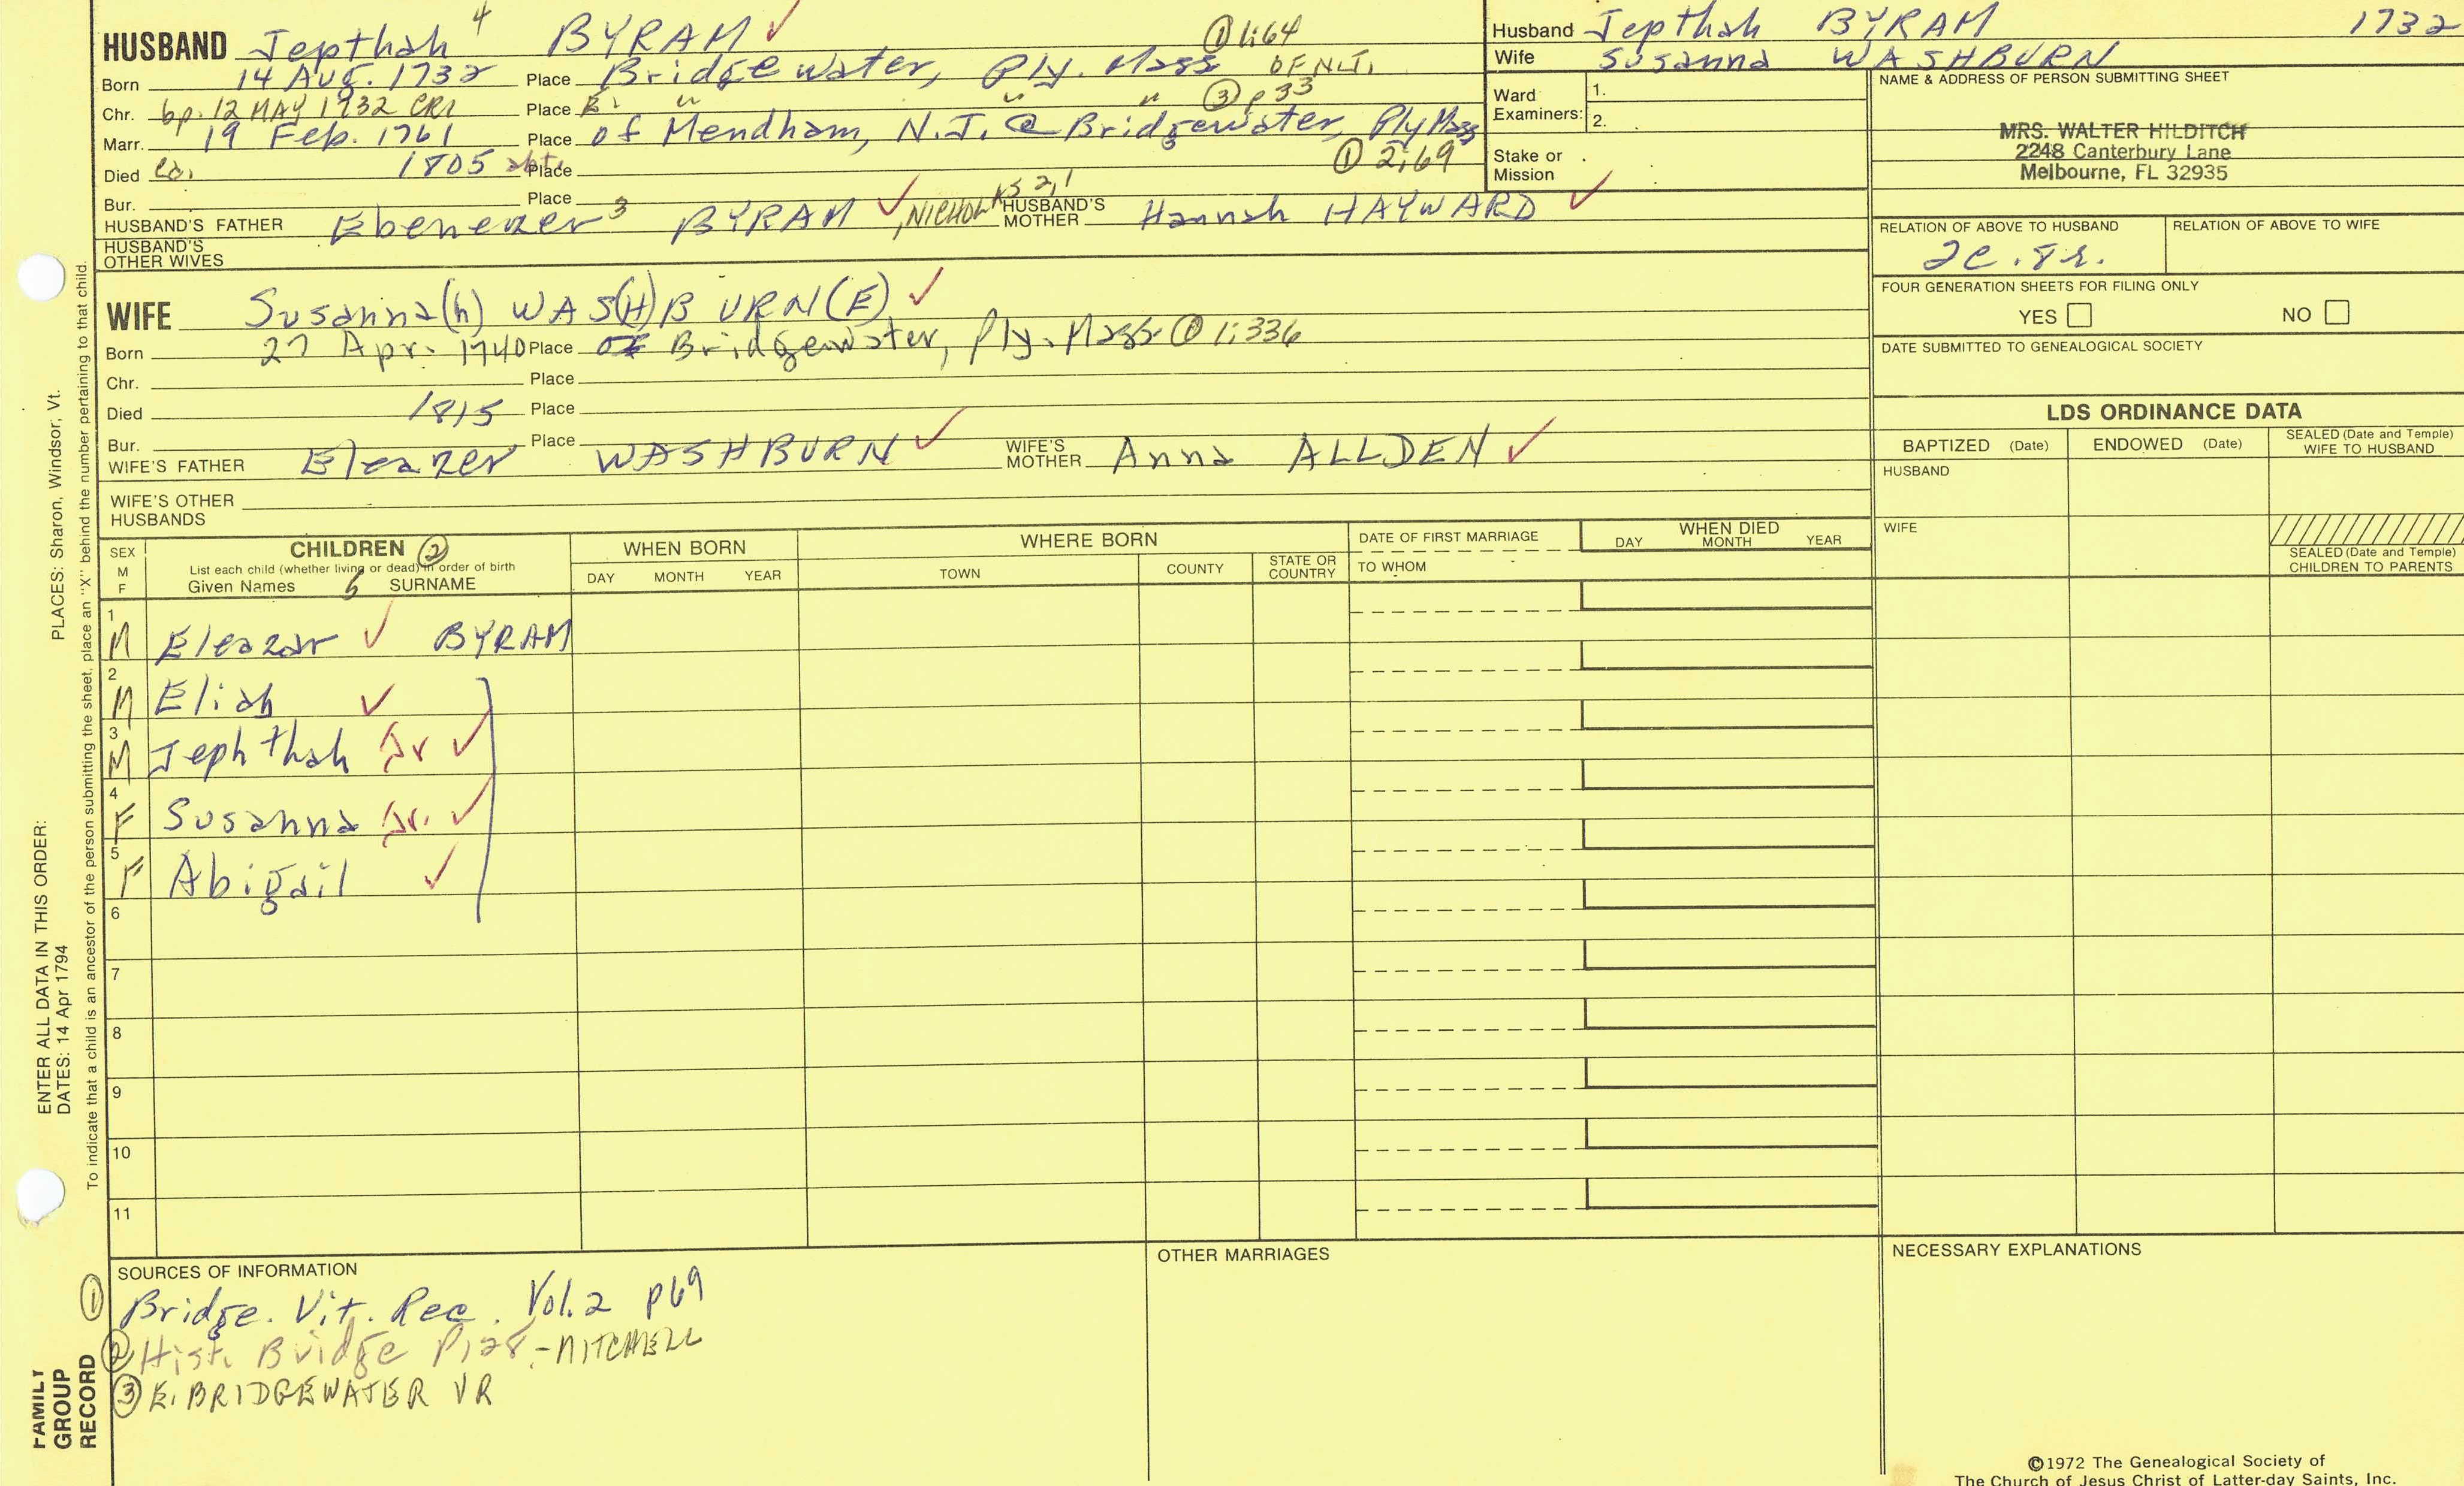 HUSBAND Jepthah 4 BYRAM ✓ ① 1:64
Born 14 Aug. 1732 Place Bridgewater, Ply. Mass OF N.J.
Chr. bp. 12 MAY 1932 CR1 Place E. " " " ③ p33
Marr. 19 Feb. 1761 Place of Mendham, N.J. @ Bridgewater, Ply Mass
Died ca. 1805 Place ① 2:69
Bur. Place
HUSBAND'S FATHER Ebenezer 3 BYRAM ✓, NICHOLAS 2,1 HUSBAND'S MOTHER Hannah HAYWARD ✓
HUSBAND'S OTHER WIVES
WIFE Susanna(h) WAS(H)BURN(E) ✓
Born 27 Apr. 1740 Place of Bridgewater, Ply. Mass ① 1:336
Chr. Place
Died 1815 Place
Bur. Place
WIFE'S FATHER Eleazer WASHBURN ✓ WIFE'S MOTHER Anna ALLDEN ✓
WIFE'S OTHER HUSBANDS
Husband Jepthah BYRAM 1732
Wife Susanna WASHBURN
Ward Examiners: 1.
2.
Stake or Mission
NAME & ADDRESS OF PERSON SUBMITTING SHEET
MRS. WALTER HILDITCH
2248 Canterbury Lane
Melbourne, FL 32935
RELATION OF ABOVE TO HUSBAND RELATION OF ABOVE TO WIFE
2c. 8r.
FOUR GENERATION SHEETS FOR FILING ONLY
YES NO
DATE SUBMITTED TO GENEALOGICAL SOCIETY
LDS ORDINANCE DATA
BAPTIZED (Date) ENDOWED (Date) SEALED (Date and Temple) WIFE TO HUSBAND
HUSBAND
WIFE
SEALED (Date and Temple) CHILDREN TO PARENTS
SEX M F
CHILDREN ②
List each child (whether living or dead) in order of birth
Given Names 5 SURNAME
WHEN BORN
DAY MONTH YEAR
WHERE BORN
TOWN COUNTY STATE OR COUNTRY
DATE OF FIRST MARRIAGE
TO WHOM
WHEN DIED
DAY MONTH YEAR
1 M Eleazar ✓ BYRAM
2 M Eliab ✓
3 M Jephthah Jr ✓
4 F Susanna Jr. ✓
5 F Abigail ✓
6
7
8
9
10
11
SOURCES OF INFORMATION
① Bridge. Vit. Rec. Vol. 2 p69
② Hist. Bridge P128 - MITCHELL
③ E. BRIDGEWATER VR
OTHER MARRIAGES
NECESSARY EXPLANATIONS
©1972 The Genealogical Society of
The Church of Jesus Christ of Latter-day Saints, Inc.
FAMILY GROUP RECORD
ENTER ALL DATA IN THIS ORDER:
DATES: 14 Apr 1794
PLACES: Sharon, Windsor, Vt.
To indicate that a child is an ancestor of the person submitting the sheet, place an "X" behind the number pertaining to that child.